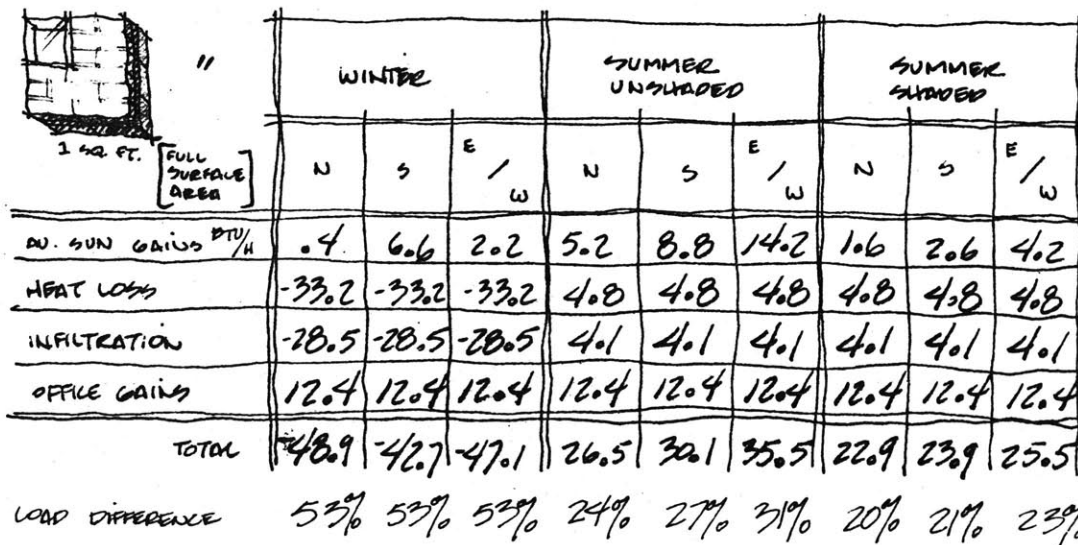 " WINTER SUMMER UNSHADED SUMMER SHADED
1 SQ. FT. [FULL SURFACE AREA] N S E/W N S E/W N S E/W
AV. SUN GAINS BTU/H .4 6.6 2.2 5.2 8.8 14.2 1.6 2.6 4.2
HEAT LOSS -33.2 -33.2 -33.2 4.8 4.8 4.8 4.8 4.8 4.8
INFILTRATION -28.5 -28.5 -28.5 4.1 4.1 4.1 4.1 4.1 4.1
OFFICE GAINS 12.4 12.4 12.4 12.4 12.4 12.4 12.4 12.4 12.4
TOTAL -48.9 -42.7 -47.1 26.5 30.1 35.5 22.9 23.9 25.5
LOAD DIFFERENCE 53% 53% 53% 24% 27% 31% 20% 21% 23%